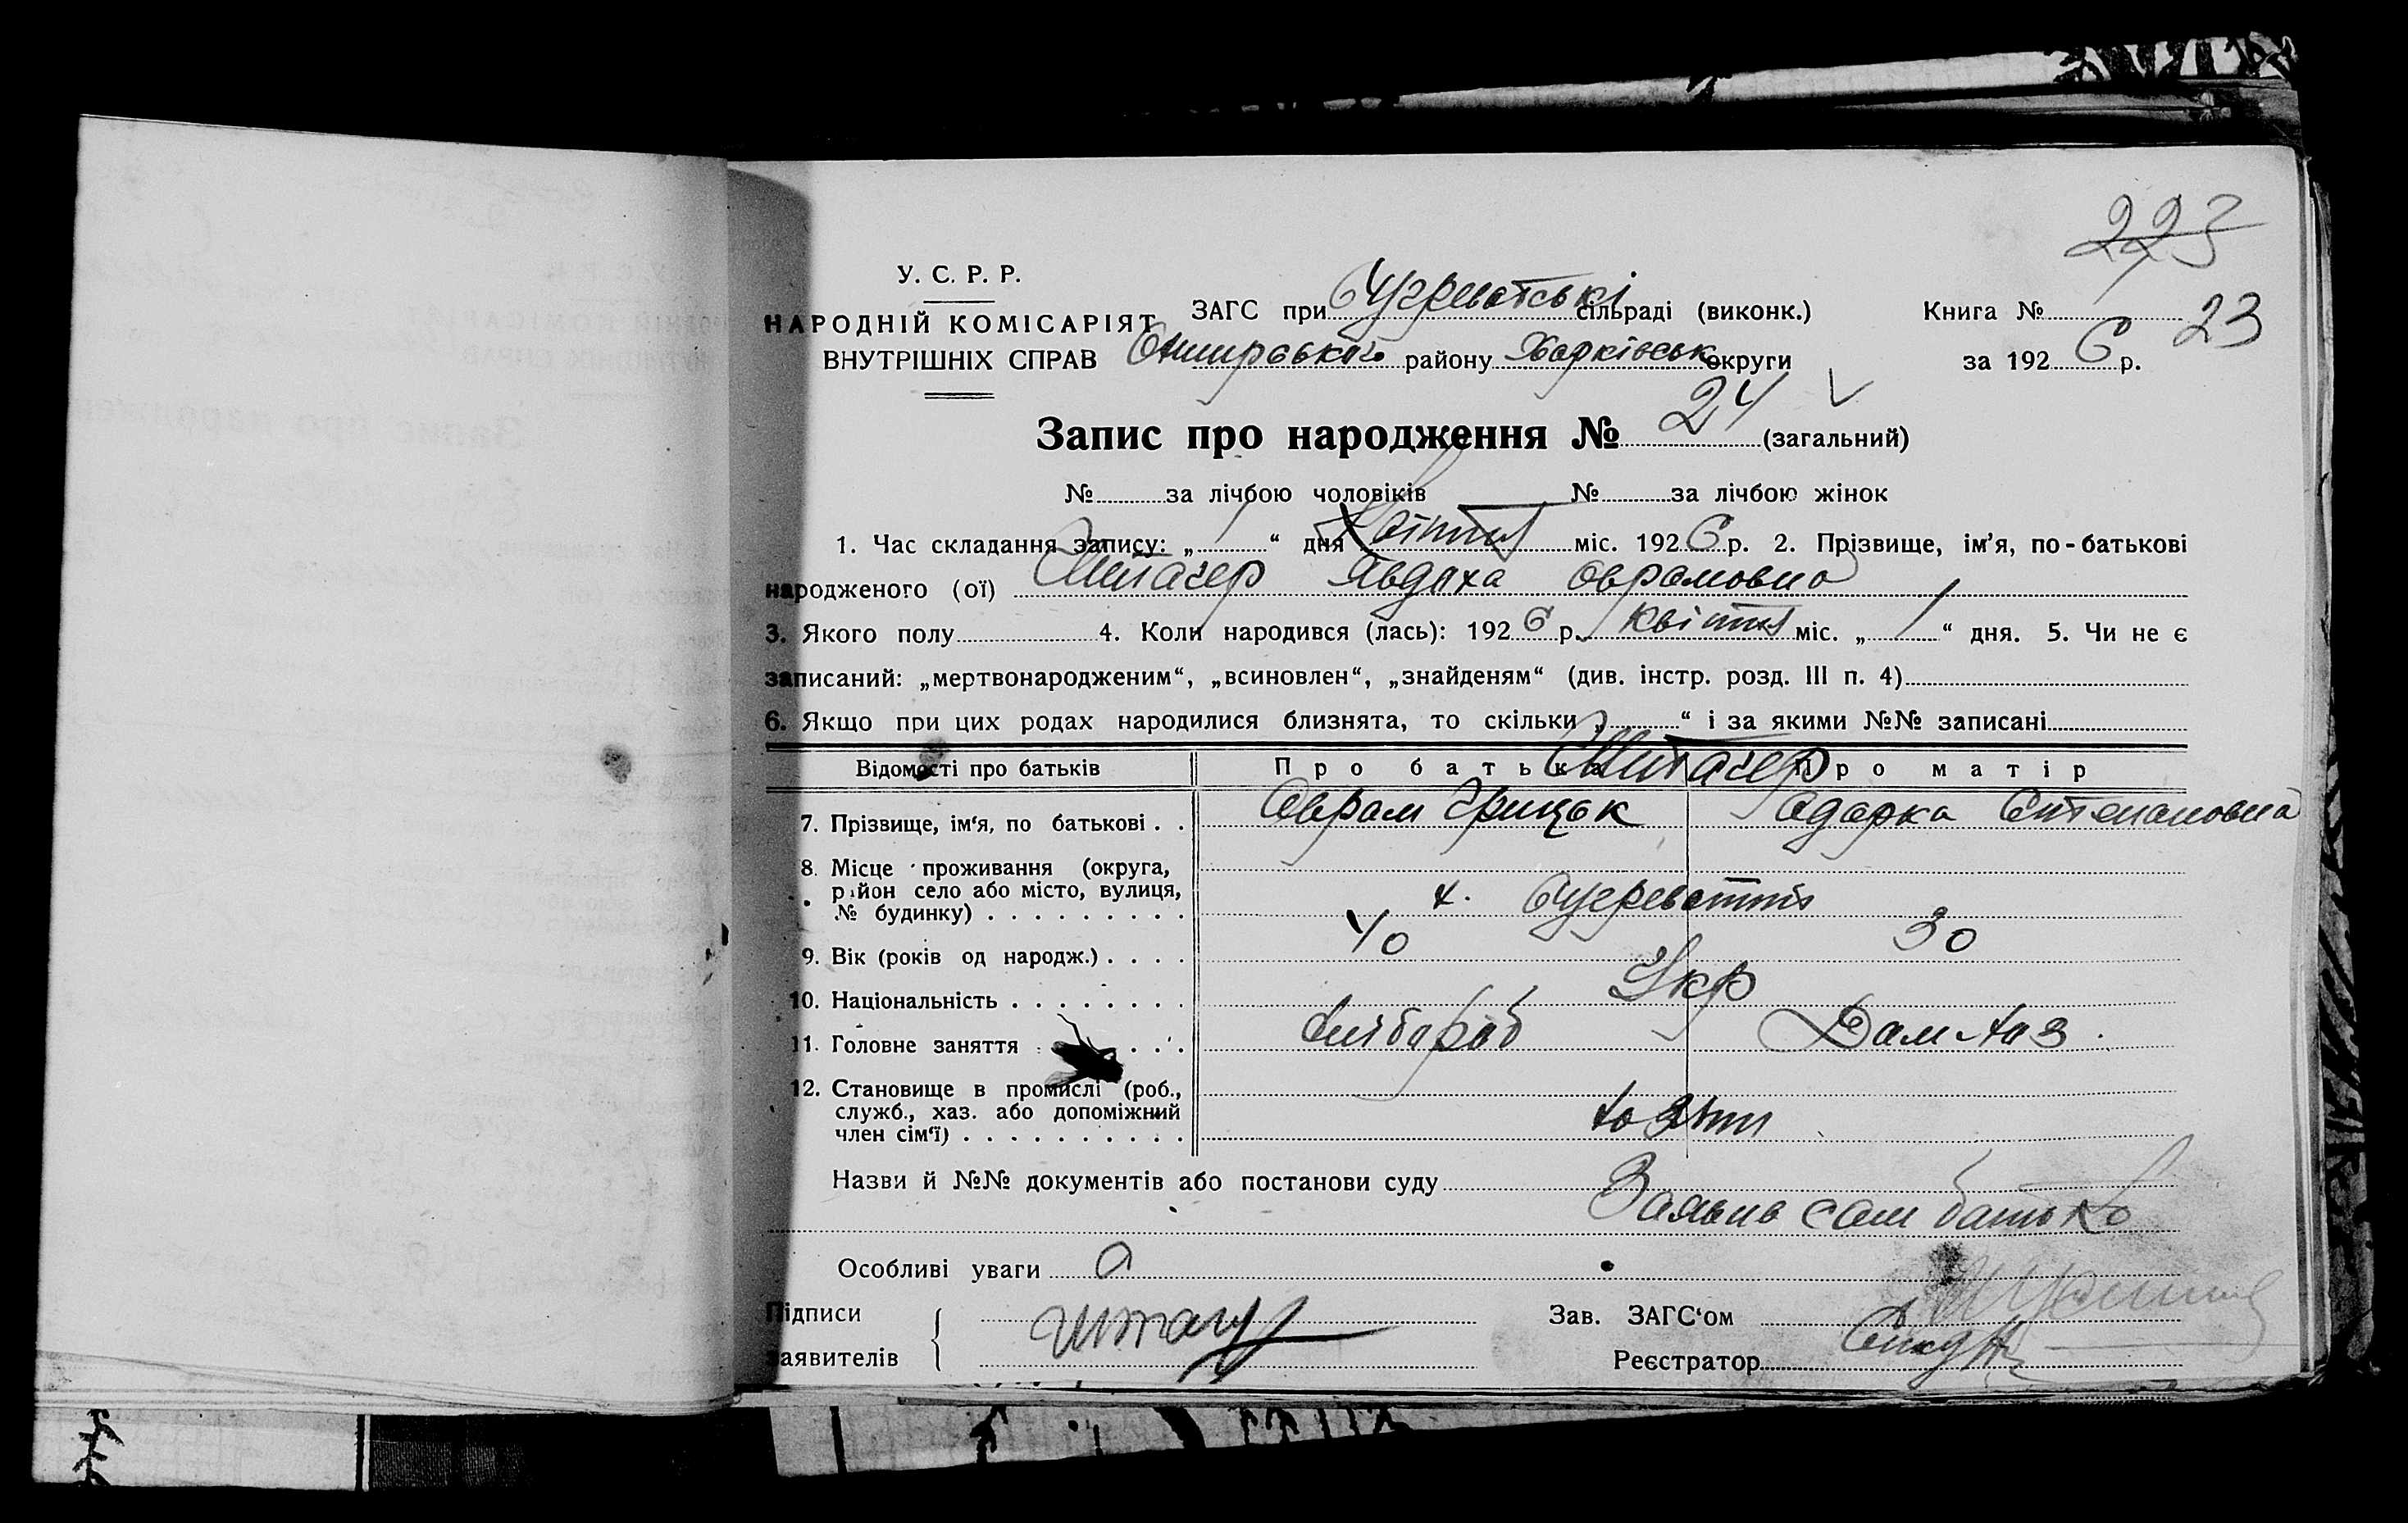 223
23
У. С. Р. Р.
НАРОДНІЙ КОМІСАРІЯТ
ВНУТРІШНІХ СПРАВ
ЗАГС при сільраді (виконк.)
району Харківськ округи
Книга №
за 192 6 р.
Запис про народження № 24 (загальний)
№ за лічбою чоловіків № за лічбою жінок
1. Час складання запису: „ 1 “ дня Квітня міс. 192 6 р. 2. Прізвище, ім’я, по-батькові
народженого (ої) Явдоха Оврамовна
3. Якого полу 4. Коли народився (лась): 192 6 р. квітня міс. „ 1 “ дня. 5. Чи не є
записаний: „мертвонародженим“, „всиновлен“, „знайденям“ (див. інстр. розд. III п. 4)
6. Якщо при цих родах народилися близнята, то скільки „ “ і за якими №№ записані
Відомості про батьків Про батька Про матір
7. Прізвище, ім‘я, по батькові . . Оврам Грицьк Одарка
8. Місце проживання (округа,
район село або місто, вулиця,
№ будинку) . . . . . . . . . х.
9. Вік (років од народж.) . . . . 40 30
10. Національність . . . . . . . . Укр
11. Головне заняття
12. Становище в промислі (роб.,
служб., хаз. або допоміжний
член сім‘ї) . . . . . . . . . .
Назви й №№ документів або постанови суду
Заявив сам батько
Особливі уваги
Підписи
заявителів
Зав. ЗАГС‘ом
Реєстратор